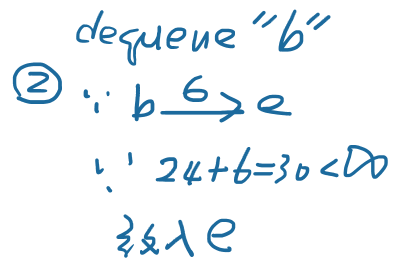 dequeue "b"
② ∵ b —6→ e
∵ 24+6=30<∞
入 e